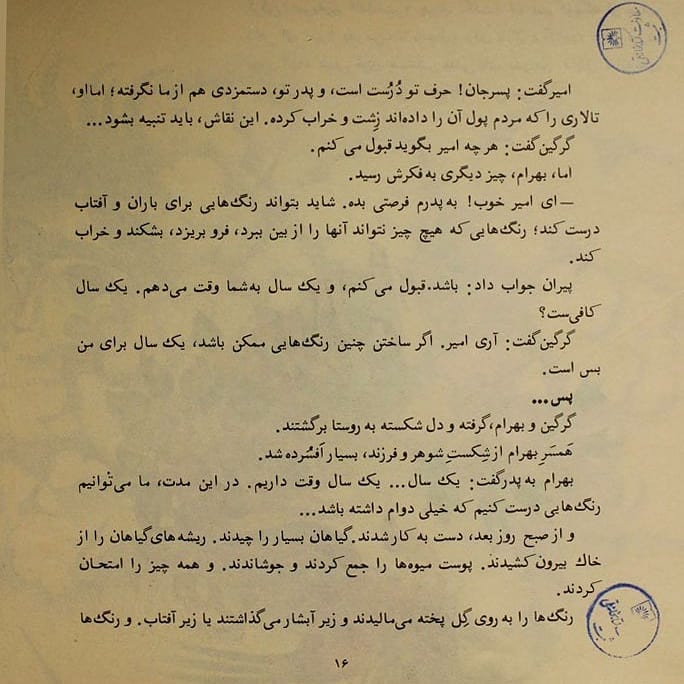 امیرگفت: پسرجان! حرف تو دُرُست است، و پدر تو، دستمزدی هم از ما نگرفته؛ اما او،
تالاری را که مردم پول آن را داده‌اند زِشت و خراب کرده. این نقاش، باید تنبیه بشود...
گرگین گفت: هر چه امیر بگوید قبول می‌کنم.
اما، بهرام، چیز دیگری به فکرش رسید.
— ای امیر خوب! به پدرم فرصتی بده. شاید بتواند رنگ‌هایی برای باران و آفتاب
درست کند؛ رنگ‌هایی که هیچ چیز نتواند آنها را از بین ببرد، فرو بریزد، بشکند و خراب
کند.
پیران جواب داد: باشد. قبول می‌کنم، و یک سال به شما وقت می‌دهم. یک سال
کافی‌ست؟
گرگین گفت: آری امیر. اگر ساختن چنین رنگ‌هایی ممکن باشد، یک سال برای من
بس است.
پس...
گرگین و بهرام، گرفته و دل شکسته به روستا برگشتند.
هَمسَرِ بهرام از شِکستِ شوهر و فرزند، بسیار اَفسُرده شد.
بهرام به پدر گفت: یک سال... یک سال وقت داریم. در این مدت، ما می‌تُوانیم
رنگ‌هایی درست کنیم که خیلی دوام داشته باشد...
و از صبح روز بعد، دست به کار شدند. گیاهان بسیار را چیدند. ریشه‌های گیاهان را از
خاک بیرون کشیدند. پوست میوه‌ها را جمع کردند و جوشاندند. و همه چیز را امتحان
کردند.
رنگ‌ها را به روی گِل پخته می‌مالیدند و زیر آبشار می‌گذاشتند یا زیر آفتاب. و رنگ‌ها
۱۶